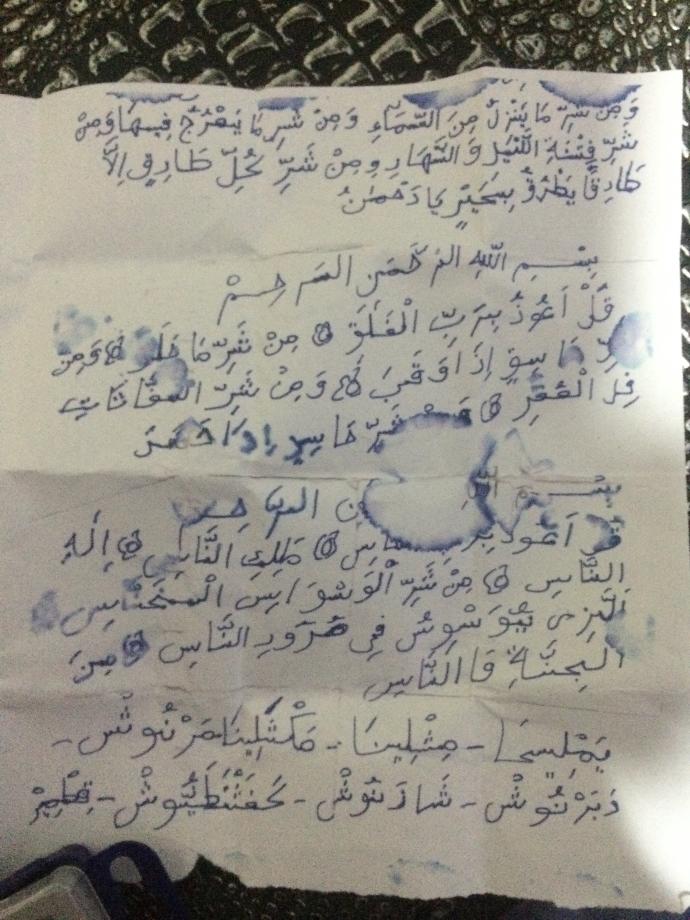 وَمِنْ شَرِّ مَا يَنْزِلُ مِنَ السَّمَآءِ وَمِنْ شَرِّ مَا يَعْرُجُ فِيهَا وَمِنْ
شَرِّ فِتْنَةِ اللَّيْلِ وَالنَّهَارِ وَمِنْ شَرِّ كُلِّ طَارِقٍ اِلَّا
طَارِقًا يَطْرُقُ بِخَيْرٍ يَا رَحْمٰنُ
بِسْمِ اللّٰهِ الرَّحْمٰنِ الرَّحِيْمْ
قُلْ اَعُوْذُ بِرَبِّ الْفَلَقِ مِنْ شَرِّ مَا خَلَقَ وَمِنْ
اِذَا وَقَبَ وَمِنْ شَرِّ
شَرِّ حَاسِدٍ اِذَا حَسَدَ
بِسْمِ
قُلْ اَعُوْذُ بِرَبِّ النَّاسِ مَلِكِ النَّاسِ اِلٰهِ
النَّاسِ مِنْ شَرِّ الْوَسْوَاسِ الْخَنَّاسِ
الَّذِى يُوَسْوِسُ فِى صُدُورِ النَّاسِ مِنَ
الْجِنَّةِ وَالنَّاسِ
يَمْلِيخَا - مِثْلِينَا - مَكْثَلِينَا مَرْنُوشْ -
دَبَرْنُوشْ - شَاذَنُوشْ - كَفَشْطَطَيُّوشْ - قِطْمِيرْ